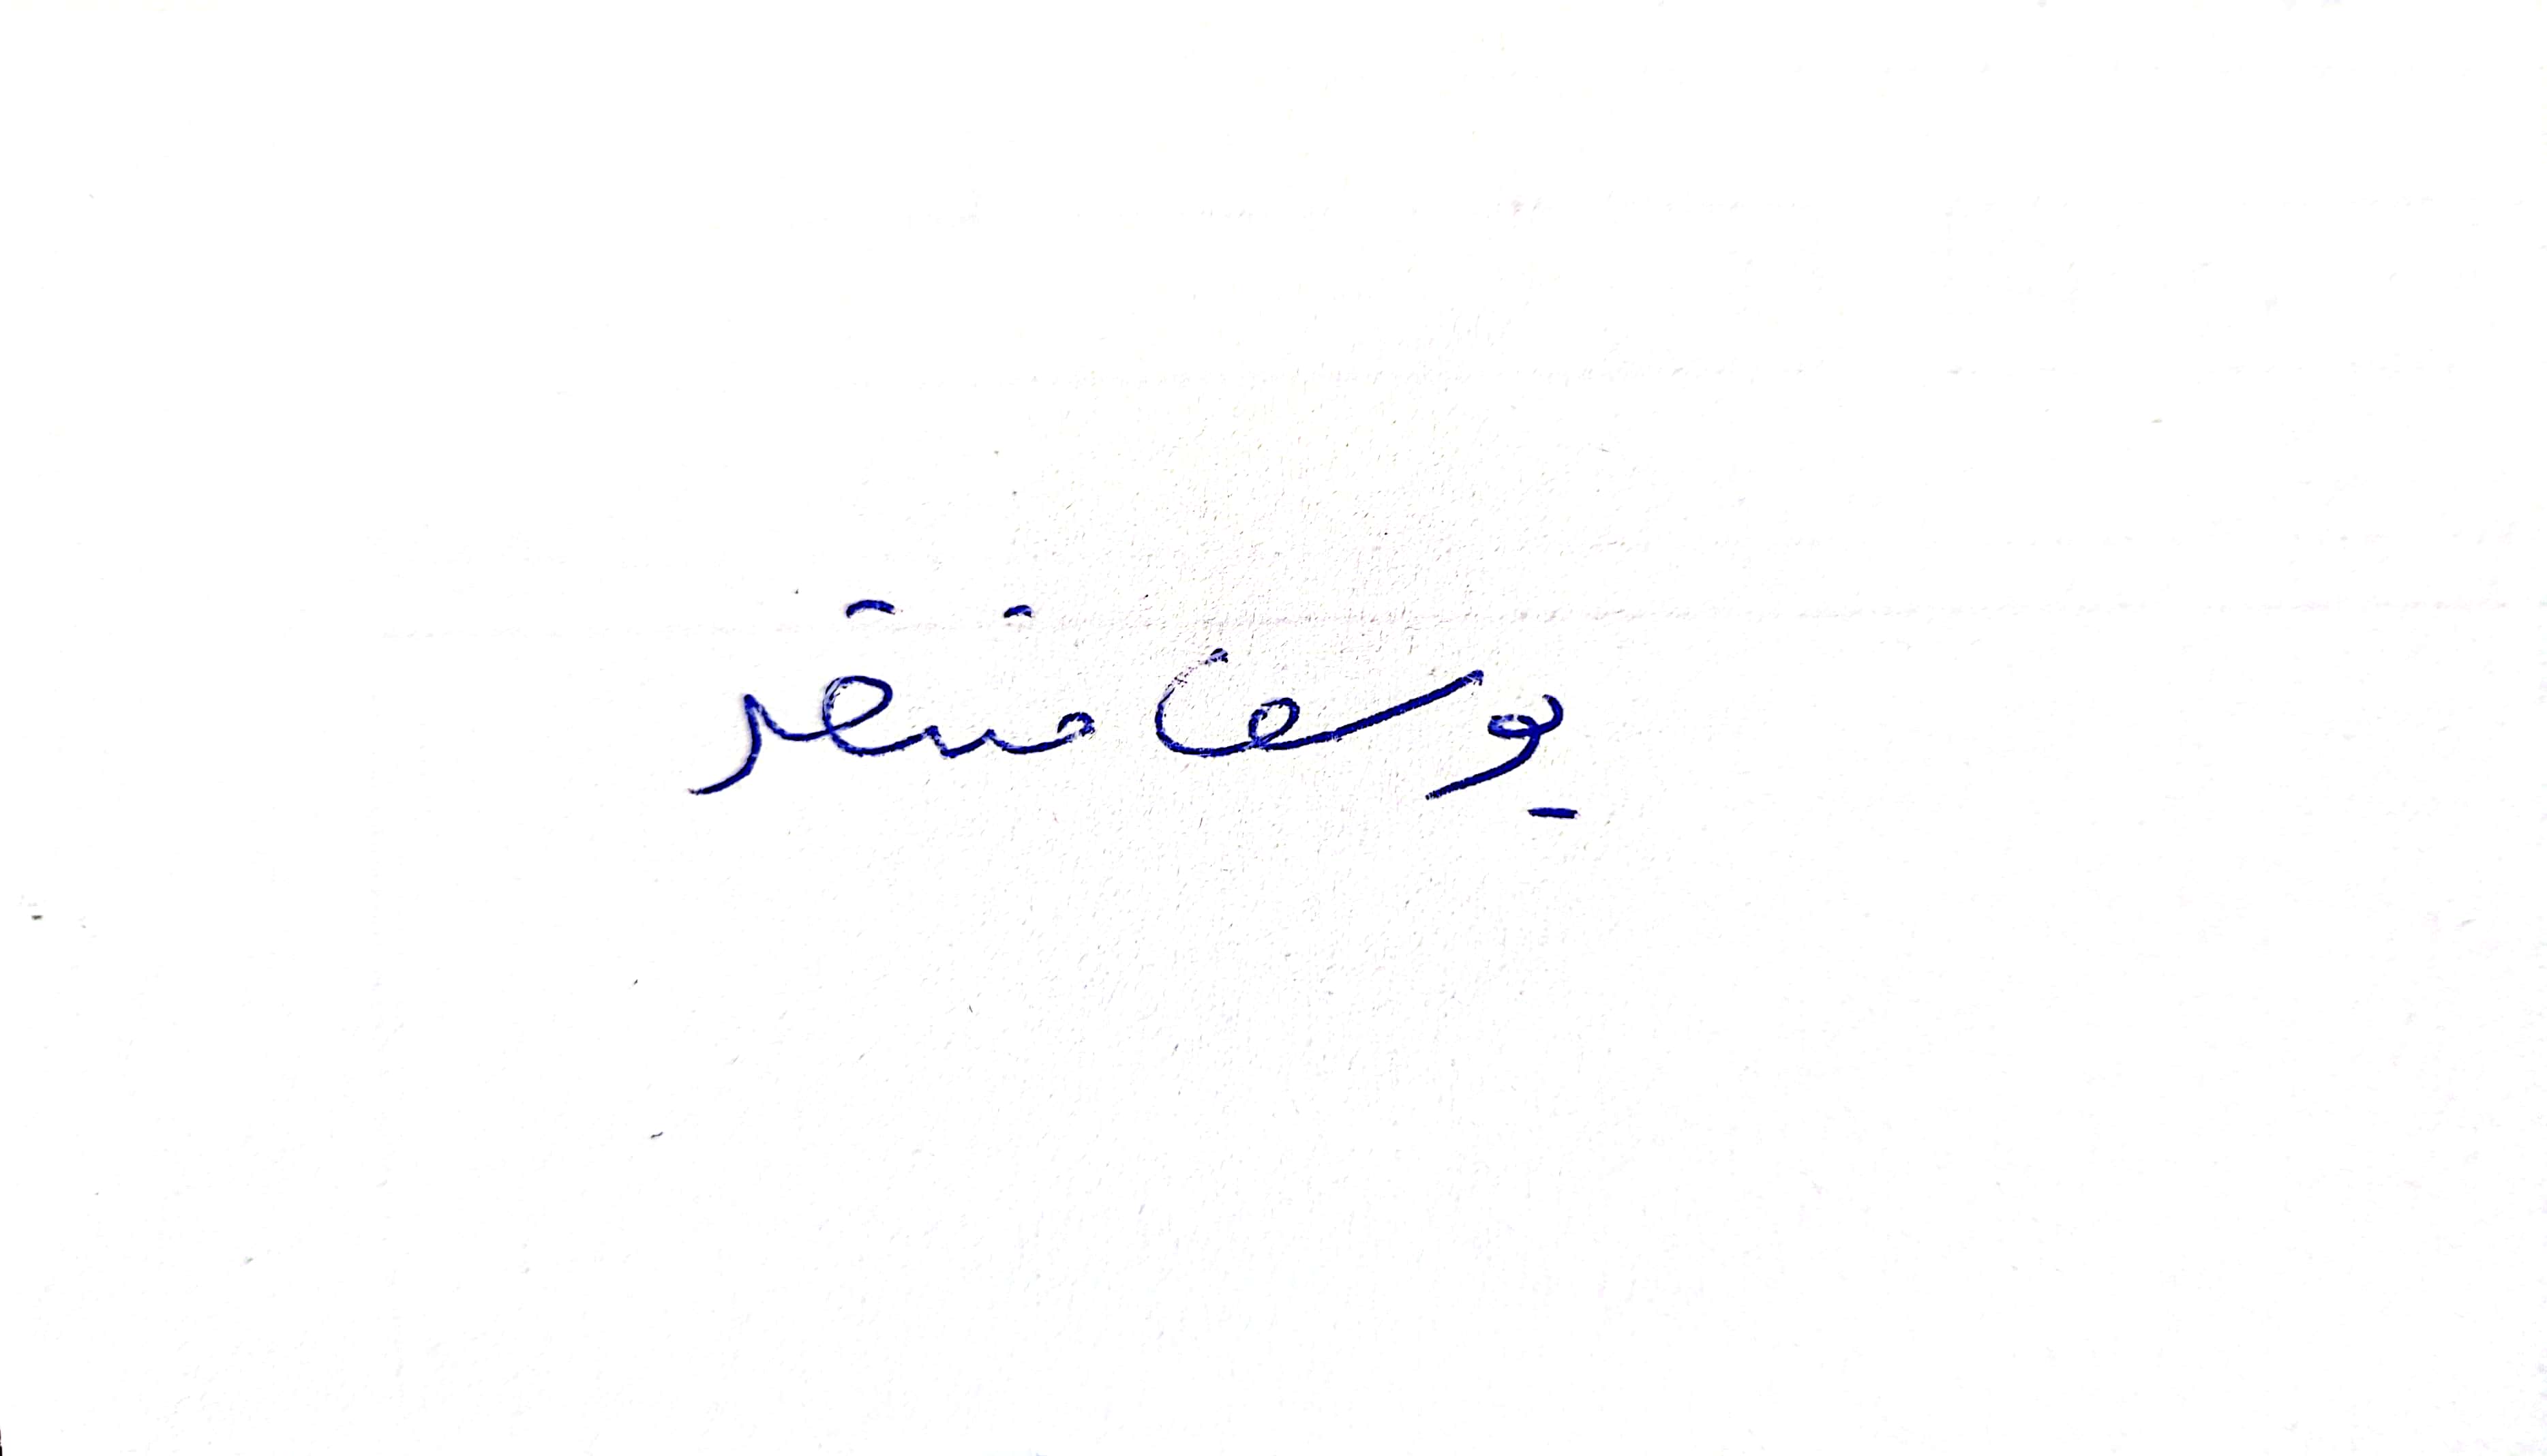 يوسف منتصر